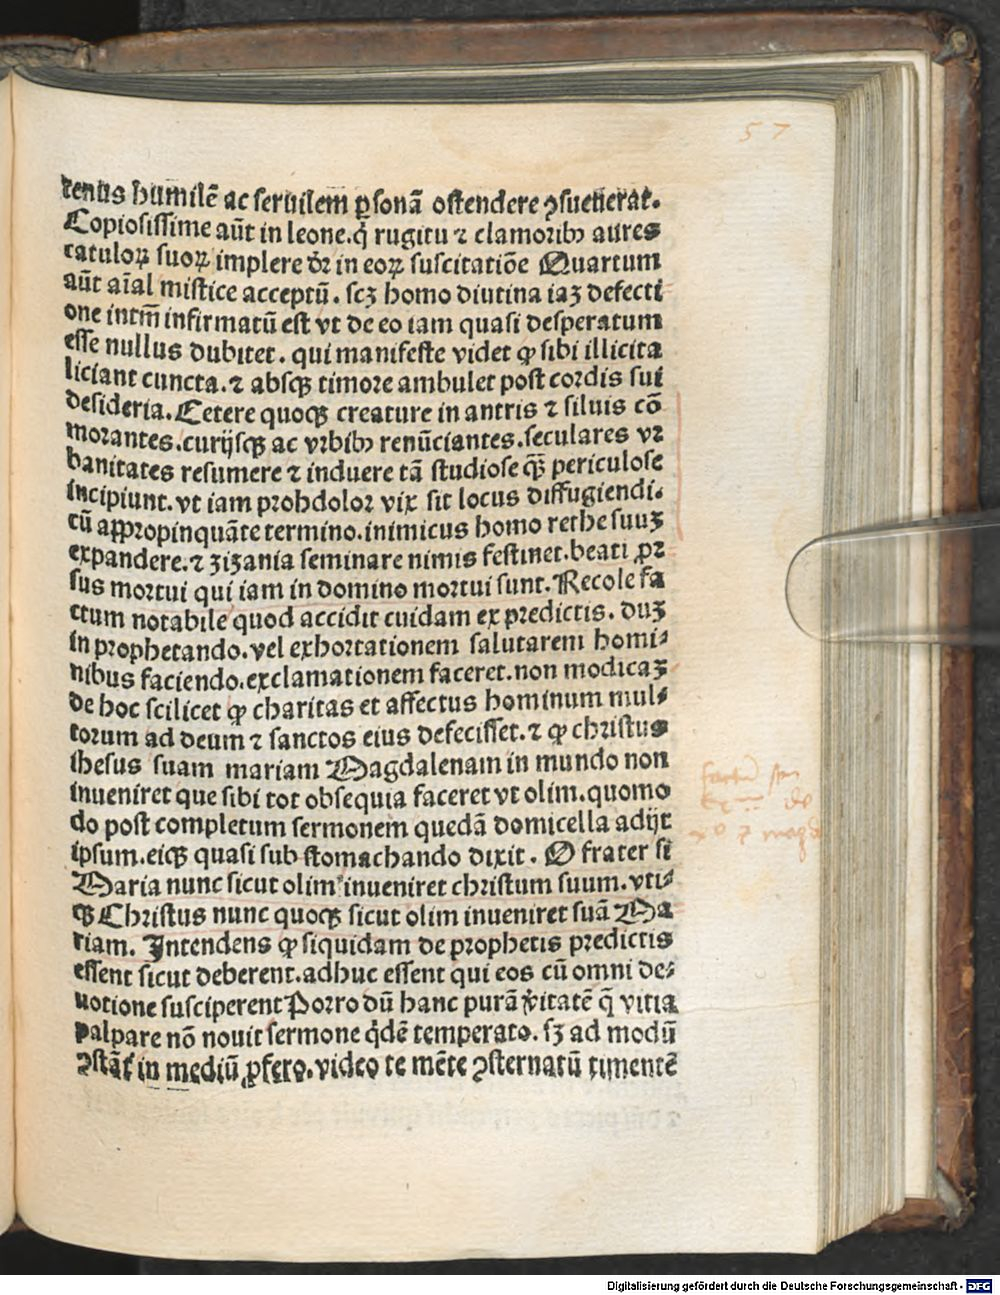 57
tenus humilē ac seruilem ꝑsonā ostendere ꝯsueuerat.
Copiosissime aūt in leone. q̇ rugitu ⁊ clamoribꝫ aures
catuloꝝ suoꝝ implere dr̄ in eoꝝ suscitatiōe Quartum
aūt aīal mistice acceptū. scꝫ homo diutina iaꝫ defecti⸗
one intm̄ infirmatū est vt de eo iam quasi desperatum
esse nullus dubitet. qui manifeste videt ꝙ sibi illicita
liciant cuncta. ⁊ absqꝫ timore ambulet post cordis sui
desideria. Cetere quoqꝫ creature in antris ⁊ siluis cō
morantes. curijsqꝫ ac vrbibꝫ renūciantes. seculares vr
banitates resumere ⁊ induere tā studiose qꝫ̄ periculose
incipiunt. vt iam prohdolor vix sit locus diffugiendi.
cū appropinquāte termino. inimicus homo rethe suuꝫ
expandere. ⁊ zizania seminare nimis festinet. beati ꝓr⸗
sus mortui qui iam in domino mortui sunt. Recole fa
ctum notabile quod accidit cuidam ex predictis. duꝫ
in prophetando. vel exhortationem salutarem homi⸗
nibus faciendo. exclamationem faceret. non modicaꝫ
de hoc scilicet ꝙ charitas et affectus hominum mul⸗
torum ad deum ⁊ sanctos eius defecisset. ⁊ ꝙ christus
ihesus suam mariam Magdalenam in mundo non
inueniret que sibi tot obsequia faceret vt olim. quomo
do post completum sermonem quedā domicella adijt
ipsum. eiqꝫ quasi sub stomachando dixit. O frater si
Maria nunc sicut olim inueniret christum suum. vti⸗
qꝫ Christus nunc quoqꝫ sicut olim inueniret suā Ma
riam. Intendens ꝙ siquidam de prophetis predictis
essent sicut deberent. adhuc essent qui eos cū omni de⸗
uotione susciperent Porro dū hanc purā v̓itatē q̄ vitia
palpare nō nouit sermone q̇dē temperato. sꝫ ad modū
in mediū ꝓfero. video te mēte ꝯsternatū timentē
de
⁊ mag
Digitalisierung gefördert durch die Deutsche Forschungsgemeinschaft - DFG